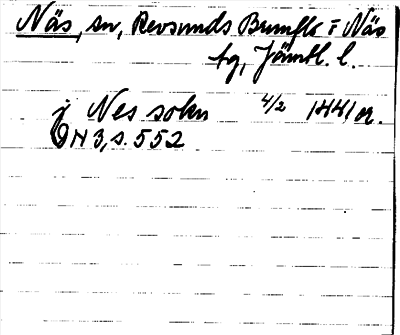 Näs, sn, Revsunds Brunflo o Näs
tg, Jämtl. l.
j Nes sokn 4/2 1441 or.
DN 3, s. 552